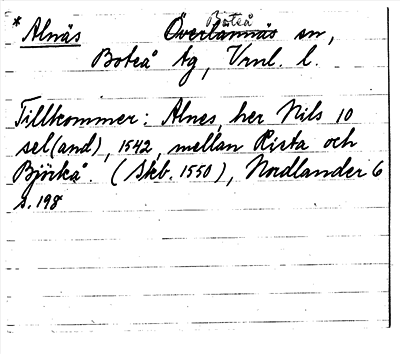 * Alnäs Överlännäs Boteå sn,
Boteå tg, Vrnl. l.
Tillkommer: Alnes, her Nils 10
sel(and), 1542, mellan Rista och
Björkå. (Skb. 1550), Nordlander 6
s. 198